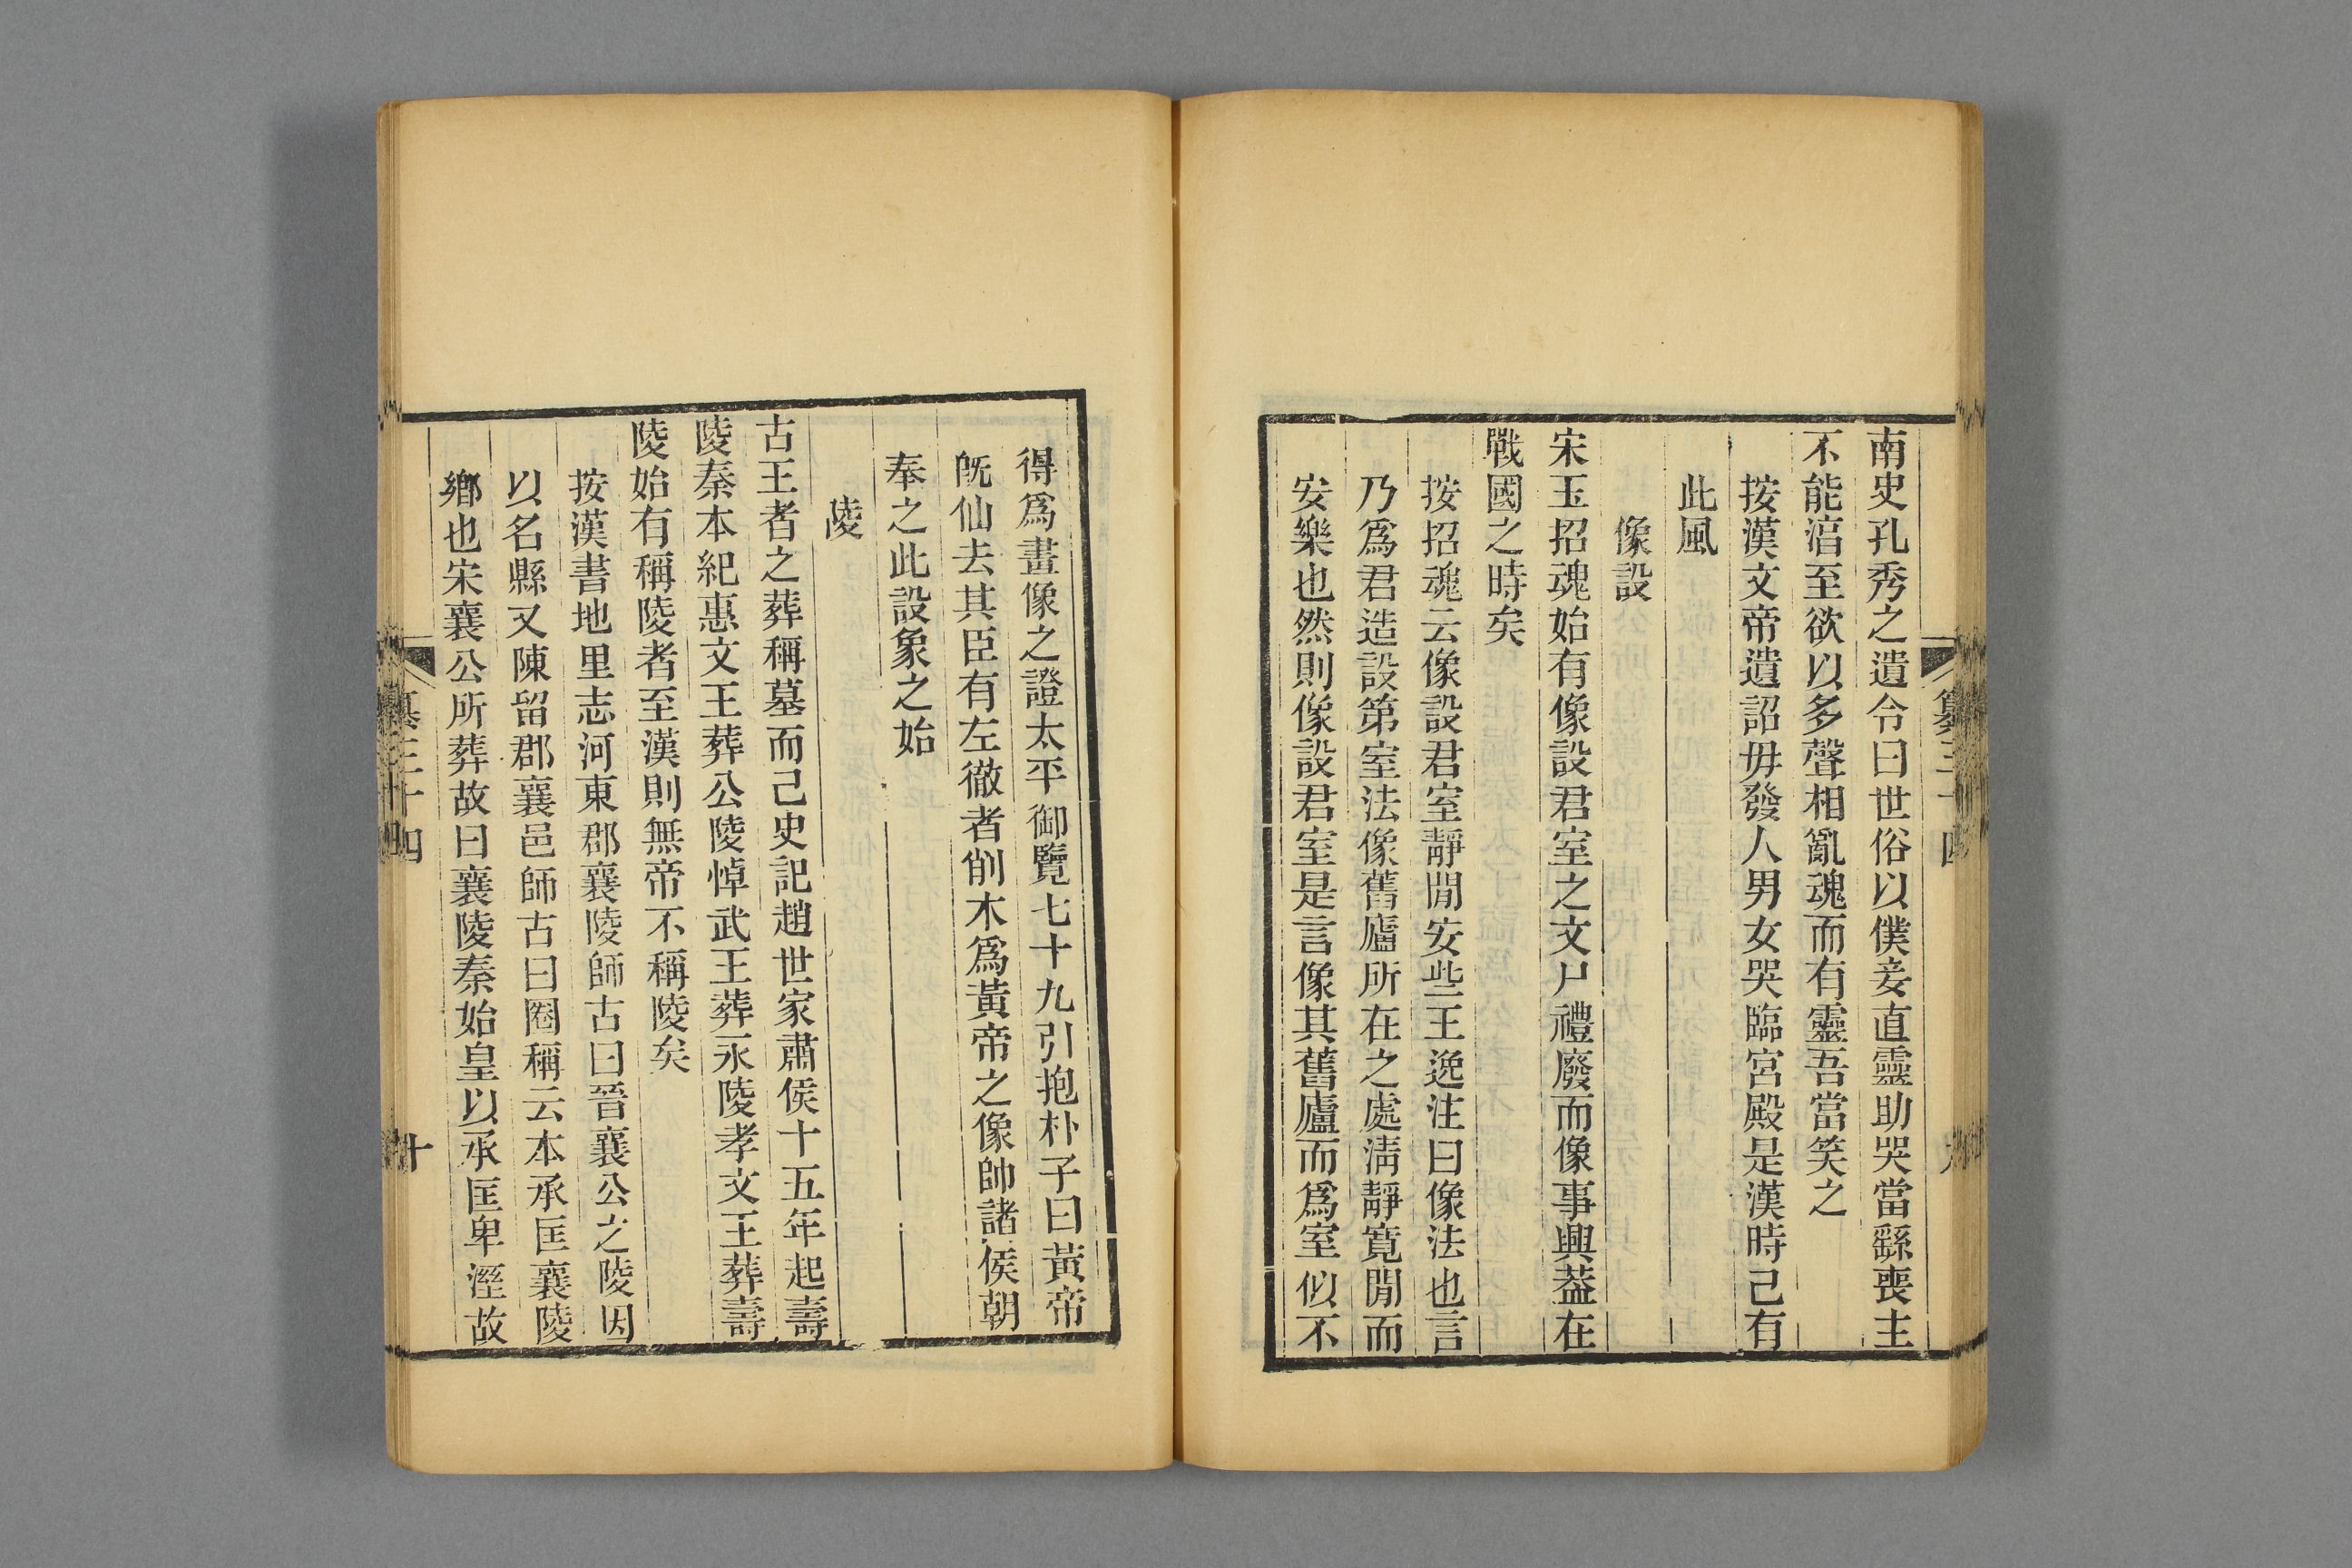 南史孔秀之遺令曰世俗以僕妾直靈助哭當繇喪主
不能淳至欲以多聲相亂魂而有靈吾當笑之
按漢文帝遺詔毋發人男女哭臨宮殿是漢時己有
此風
像設
宋玉招魂始有像設君室之文尸禮廢而像事興葢在
戰國之時矣
按招魂云像設君室靜閒安些王逸注曰像法也言
乃爲君造設第室法像舊廬所在之處淸靜寬閒而
安樂也然則像設君室是言像其舊廬而爲室似不
得爲畫像之證太平御覽七十九引抱朴子曰黃帝
旣仙去其臣有左徹者削木爲黃帝之像帥諸侯朝
奉之此設象之始
陵
古王者之葬稱墓而己史記趙世家肅侯十五年起壽
陵秦本紀惠文王葬公陵悼武王葬永陵孝文王葬壽
陵始有稱陵者至漢則無帝不稱陵矣
按漢書地里志河東郡襄陵師古曰晉襄公之陵因
以名縣又陳留郡襄邑師古曰圈稱云本承匡襄陵
鄉也宋襄公所葬故曰襄陵秦始皇以承匡卑溼故
纂三十四
十